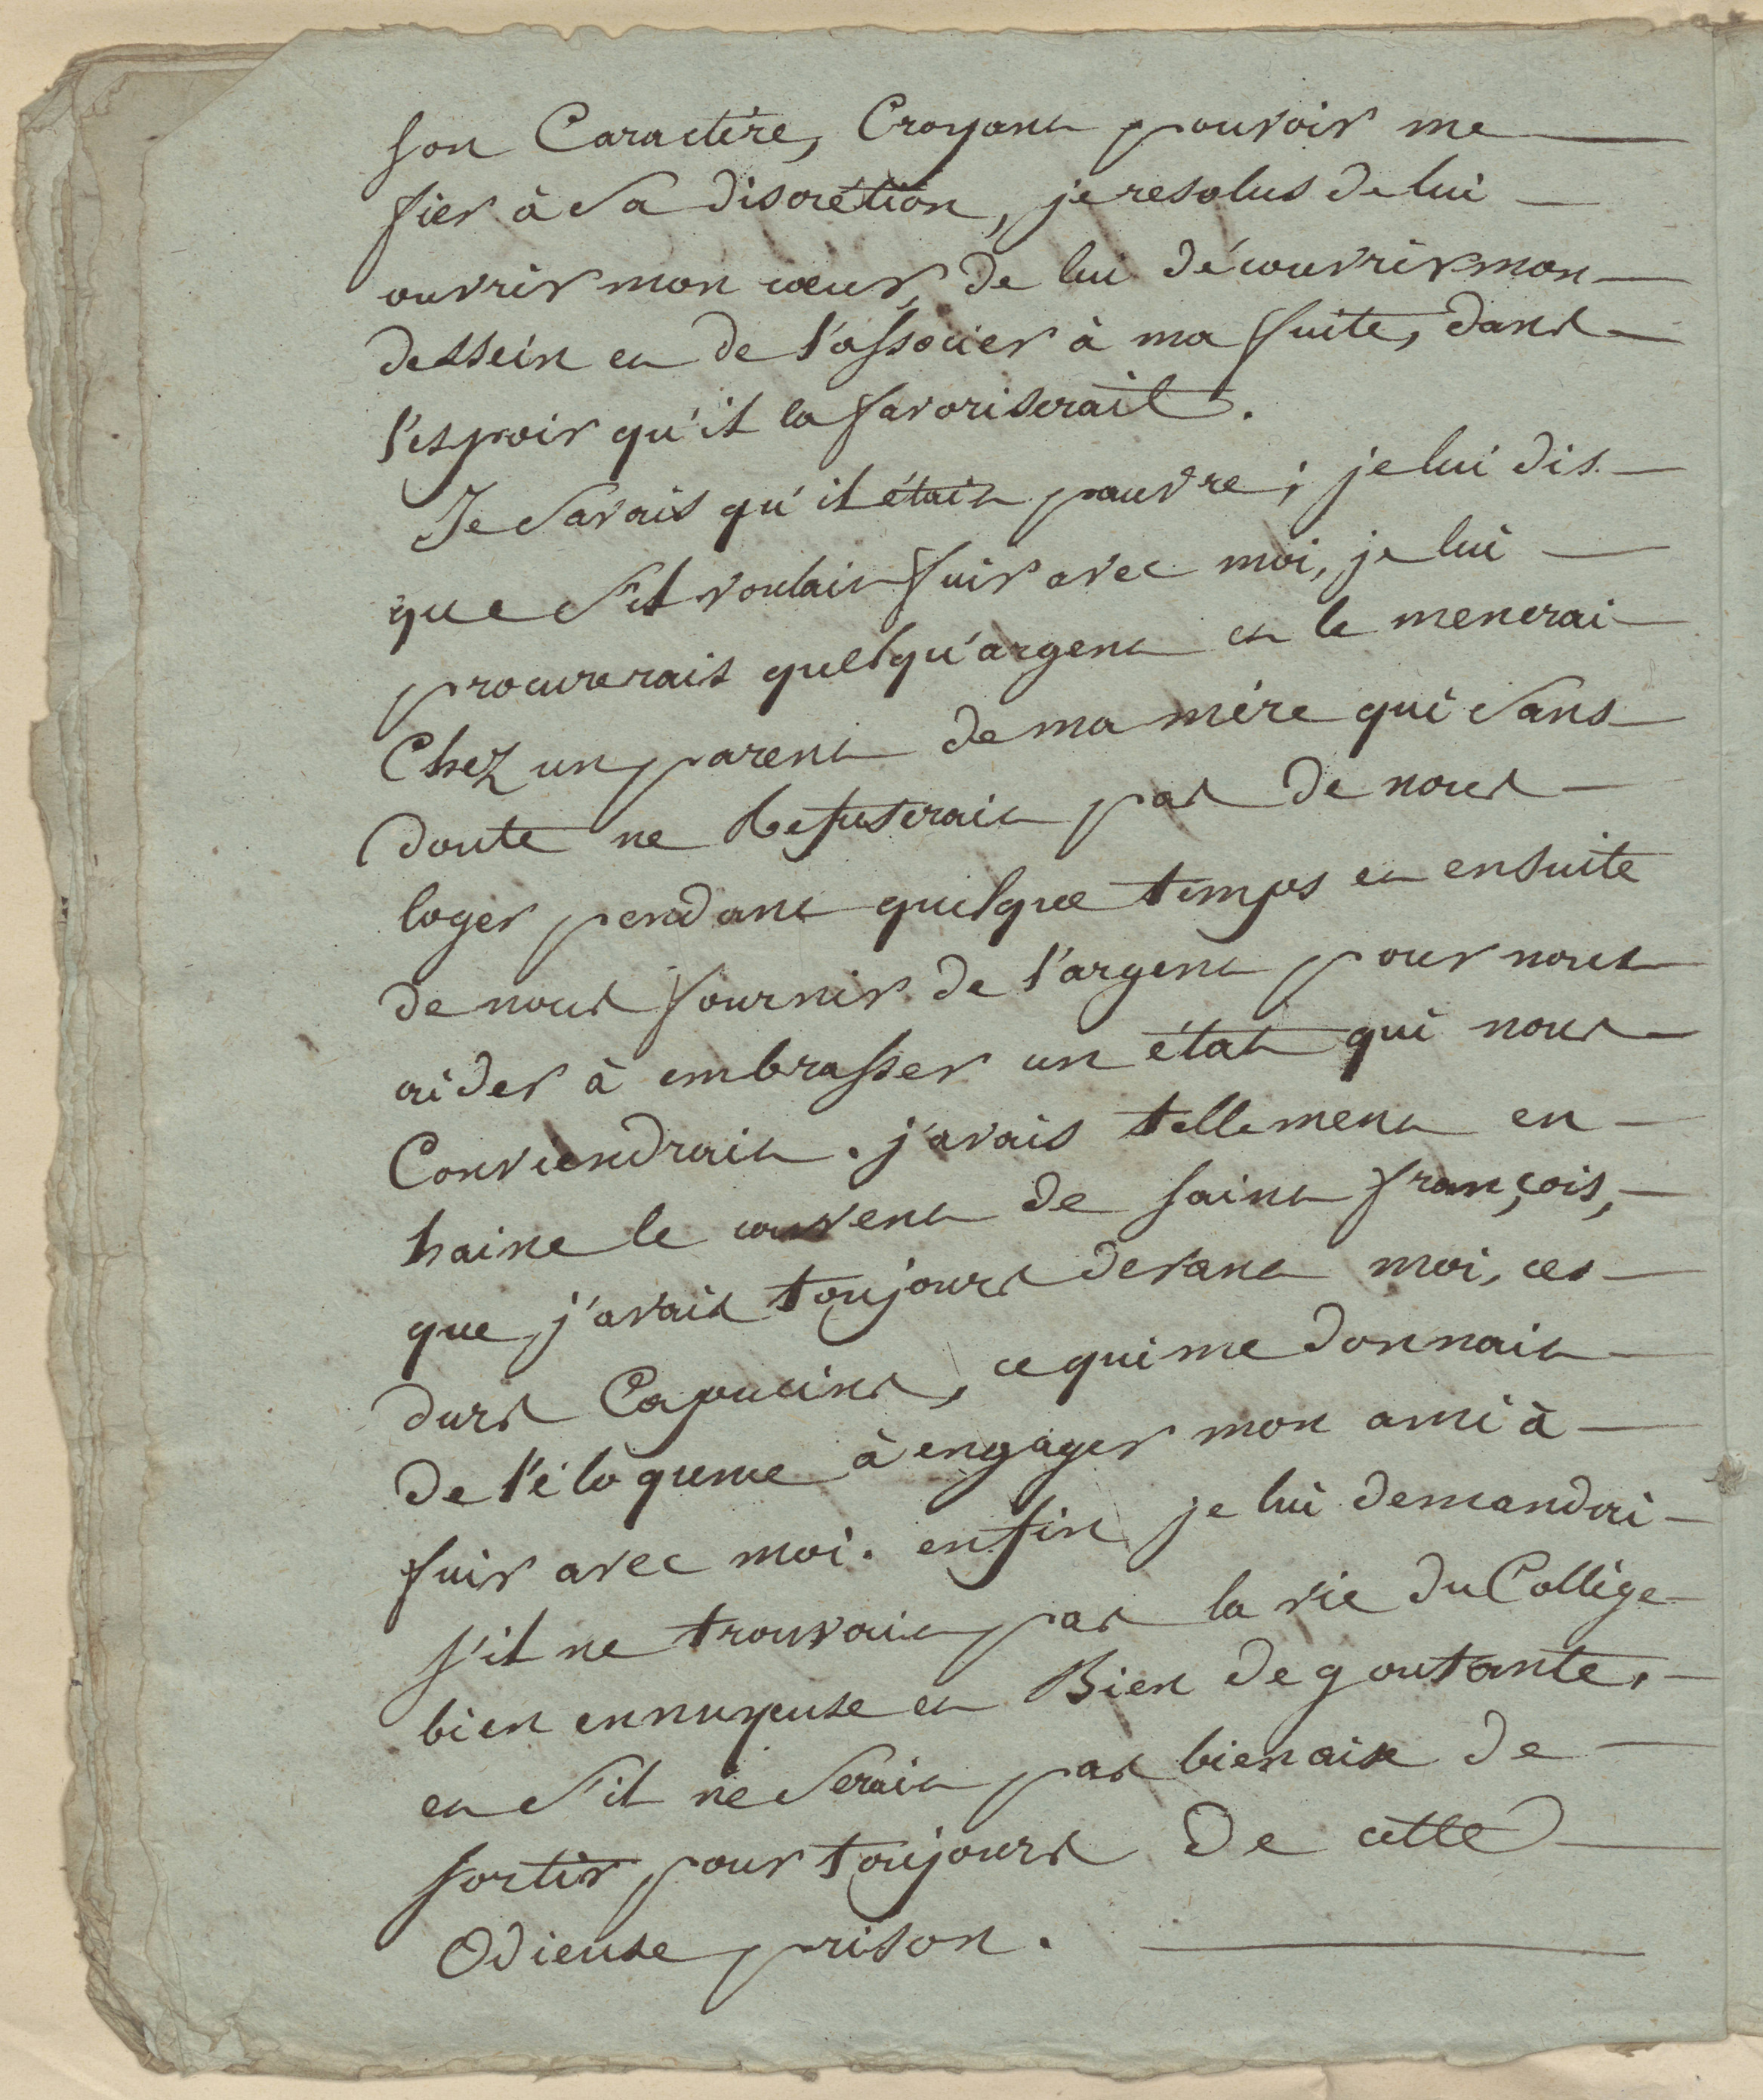 son Caractère, Croyant pouvoir me
fier à sa discrétion, je resolus de lui
ouvrir mon cœur, de lui découvrir mon
dessein et de l'associer à ma fuite, dans
l'espoir qu'il la favoriserait.
Je savais qu'il était pauvre ; je lui dis
que s'il voulait fuir avec moi, je lui
procurerais quelqu'argent et le menerai
Chez un parent de ma mère qui sans
doute ne refuserait pas de nous
loger pendant quelque temps et ensuite
de nous fournir de l'argent pour nous
aider à embrasser un état qui nous
Conviendrait. j'avais tellement en
haine le couvent de saint françois,
que j'avais toujours devant moi, ces
durs Capucins, ce qui me donnait
de l'éloquence à engager mon ami à
fuir avec moi. enfin je lui demandai
s'il ne trouvait pas la vie du Collège
bien ennuyeuse et Bien degoutante,
et s'il ne serait pas bien aise de
sortir pour toujours de cette
Odieuse prison.